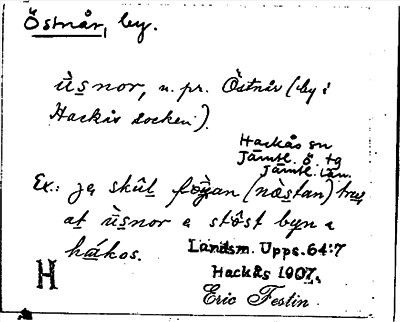 Östnår, by.
ùs̲nor, n. pr. Östnår (by i
Hackås socken).
Hackås sn
Jämtl. ö. tg
Jämtl. län.
Ex.: ja skûl̲ (nòs̲tan)
at̲ ùs̲nor a stôst byn a
hákos. Landsm. Upps. 64:7
H Hackås 1907.
Eric Festin